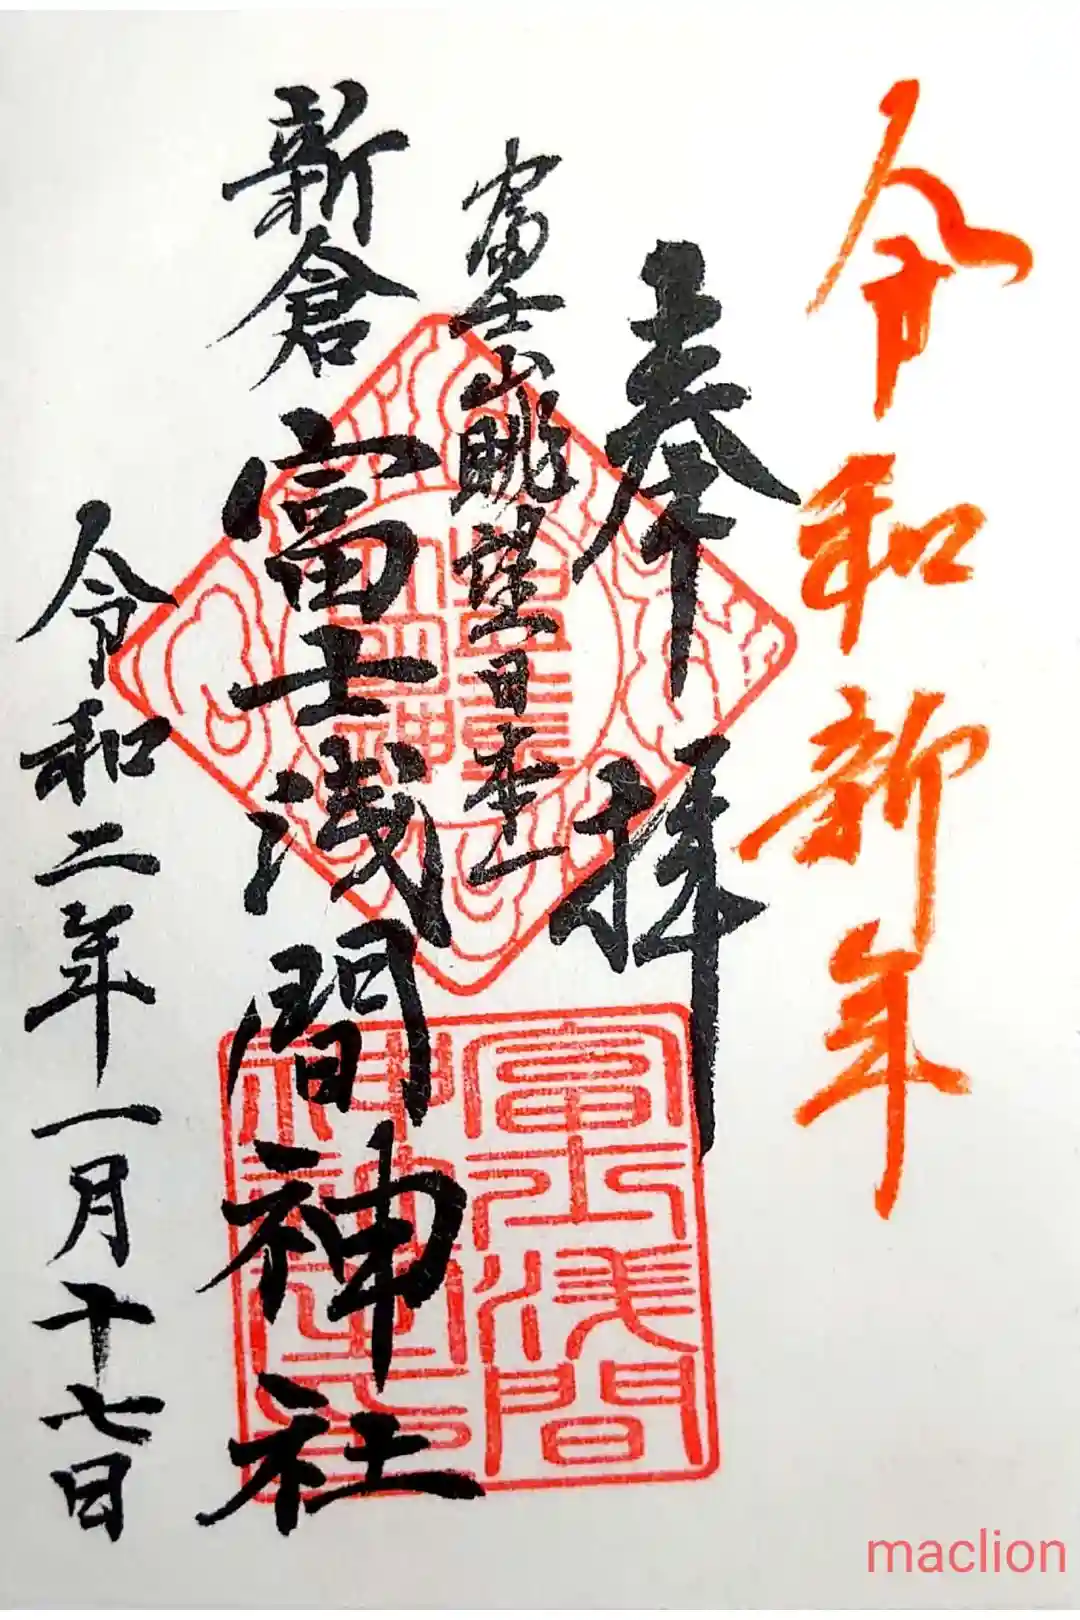 令和新年
奉拝
富士山眺望日本一
新倉富士浅間神社
令和二年一月十七日
富士浅間
maclion